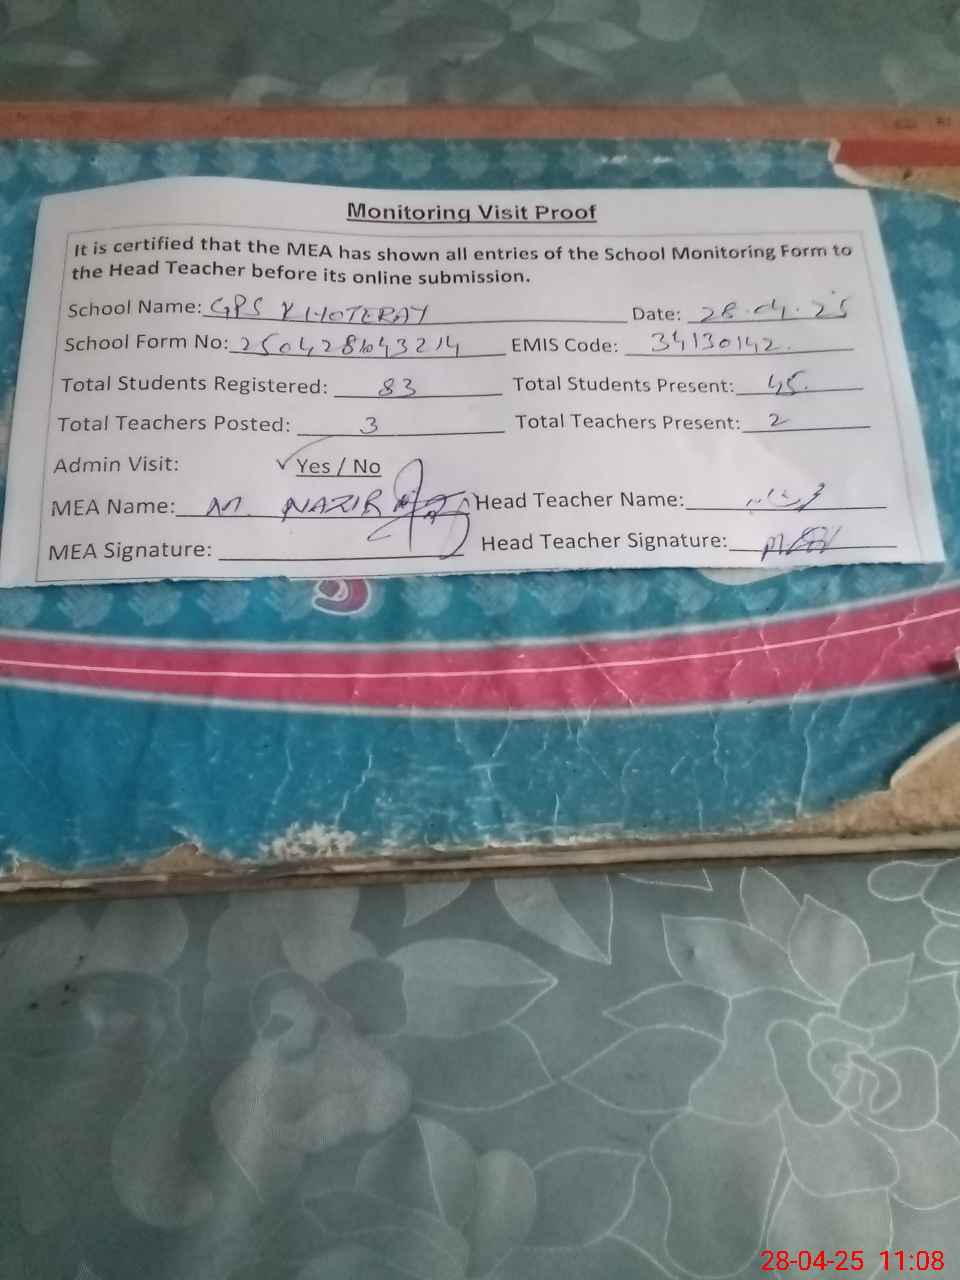 Monitoring Visit Proof
It is certified that the MEA has shown all entries of the School Monitoring Form to
the Head Teacher before its online submission.
School Name: GPS KHOTERAY Date: 28.04.25
School Form No: EMIS Code: 34130142
Total Students Registered: 83 Total Students Present: 45
Total Teachers Posted: 3 Total Teachers Present: 2
Admin Visit: ✓ Yes / No
MEA Name: M. NAZIR Head Teacher Name:
MEA Signature: Head Teacher Signature:
28-04-25 11:08